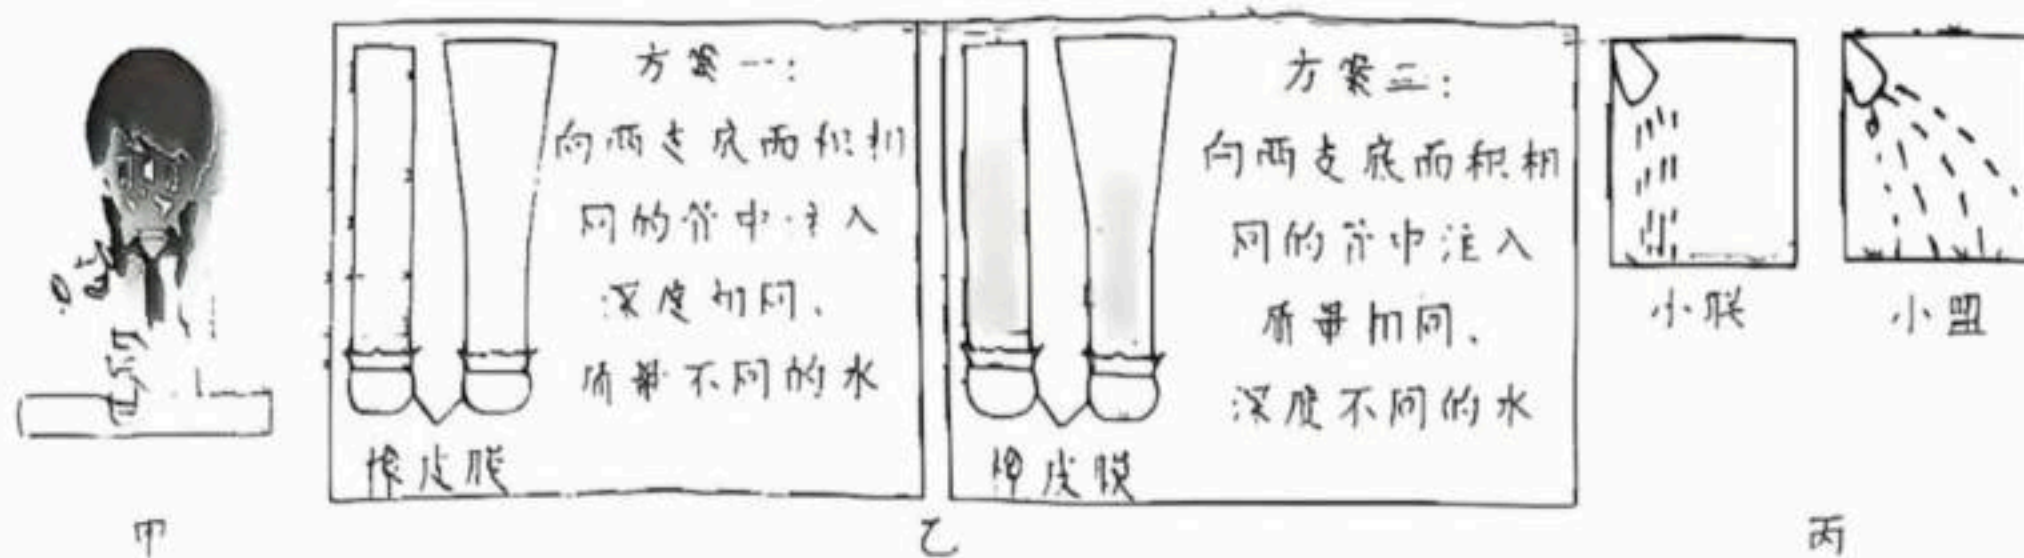 方案一：
向两支底面积相
同的管中注入
深度相同、
质量不同的水
橡皮膜
方案二：
向两支底面积相
同的管中注入
质量相同、
深度不同的水
橡皮膜
小联
小盟
甲
乙
丙